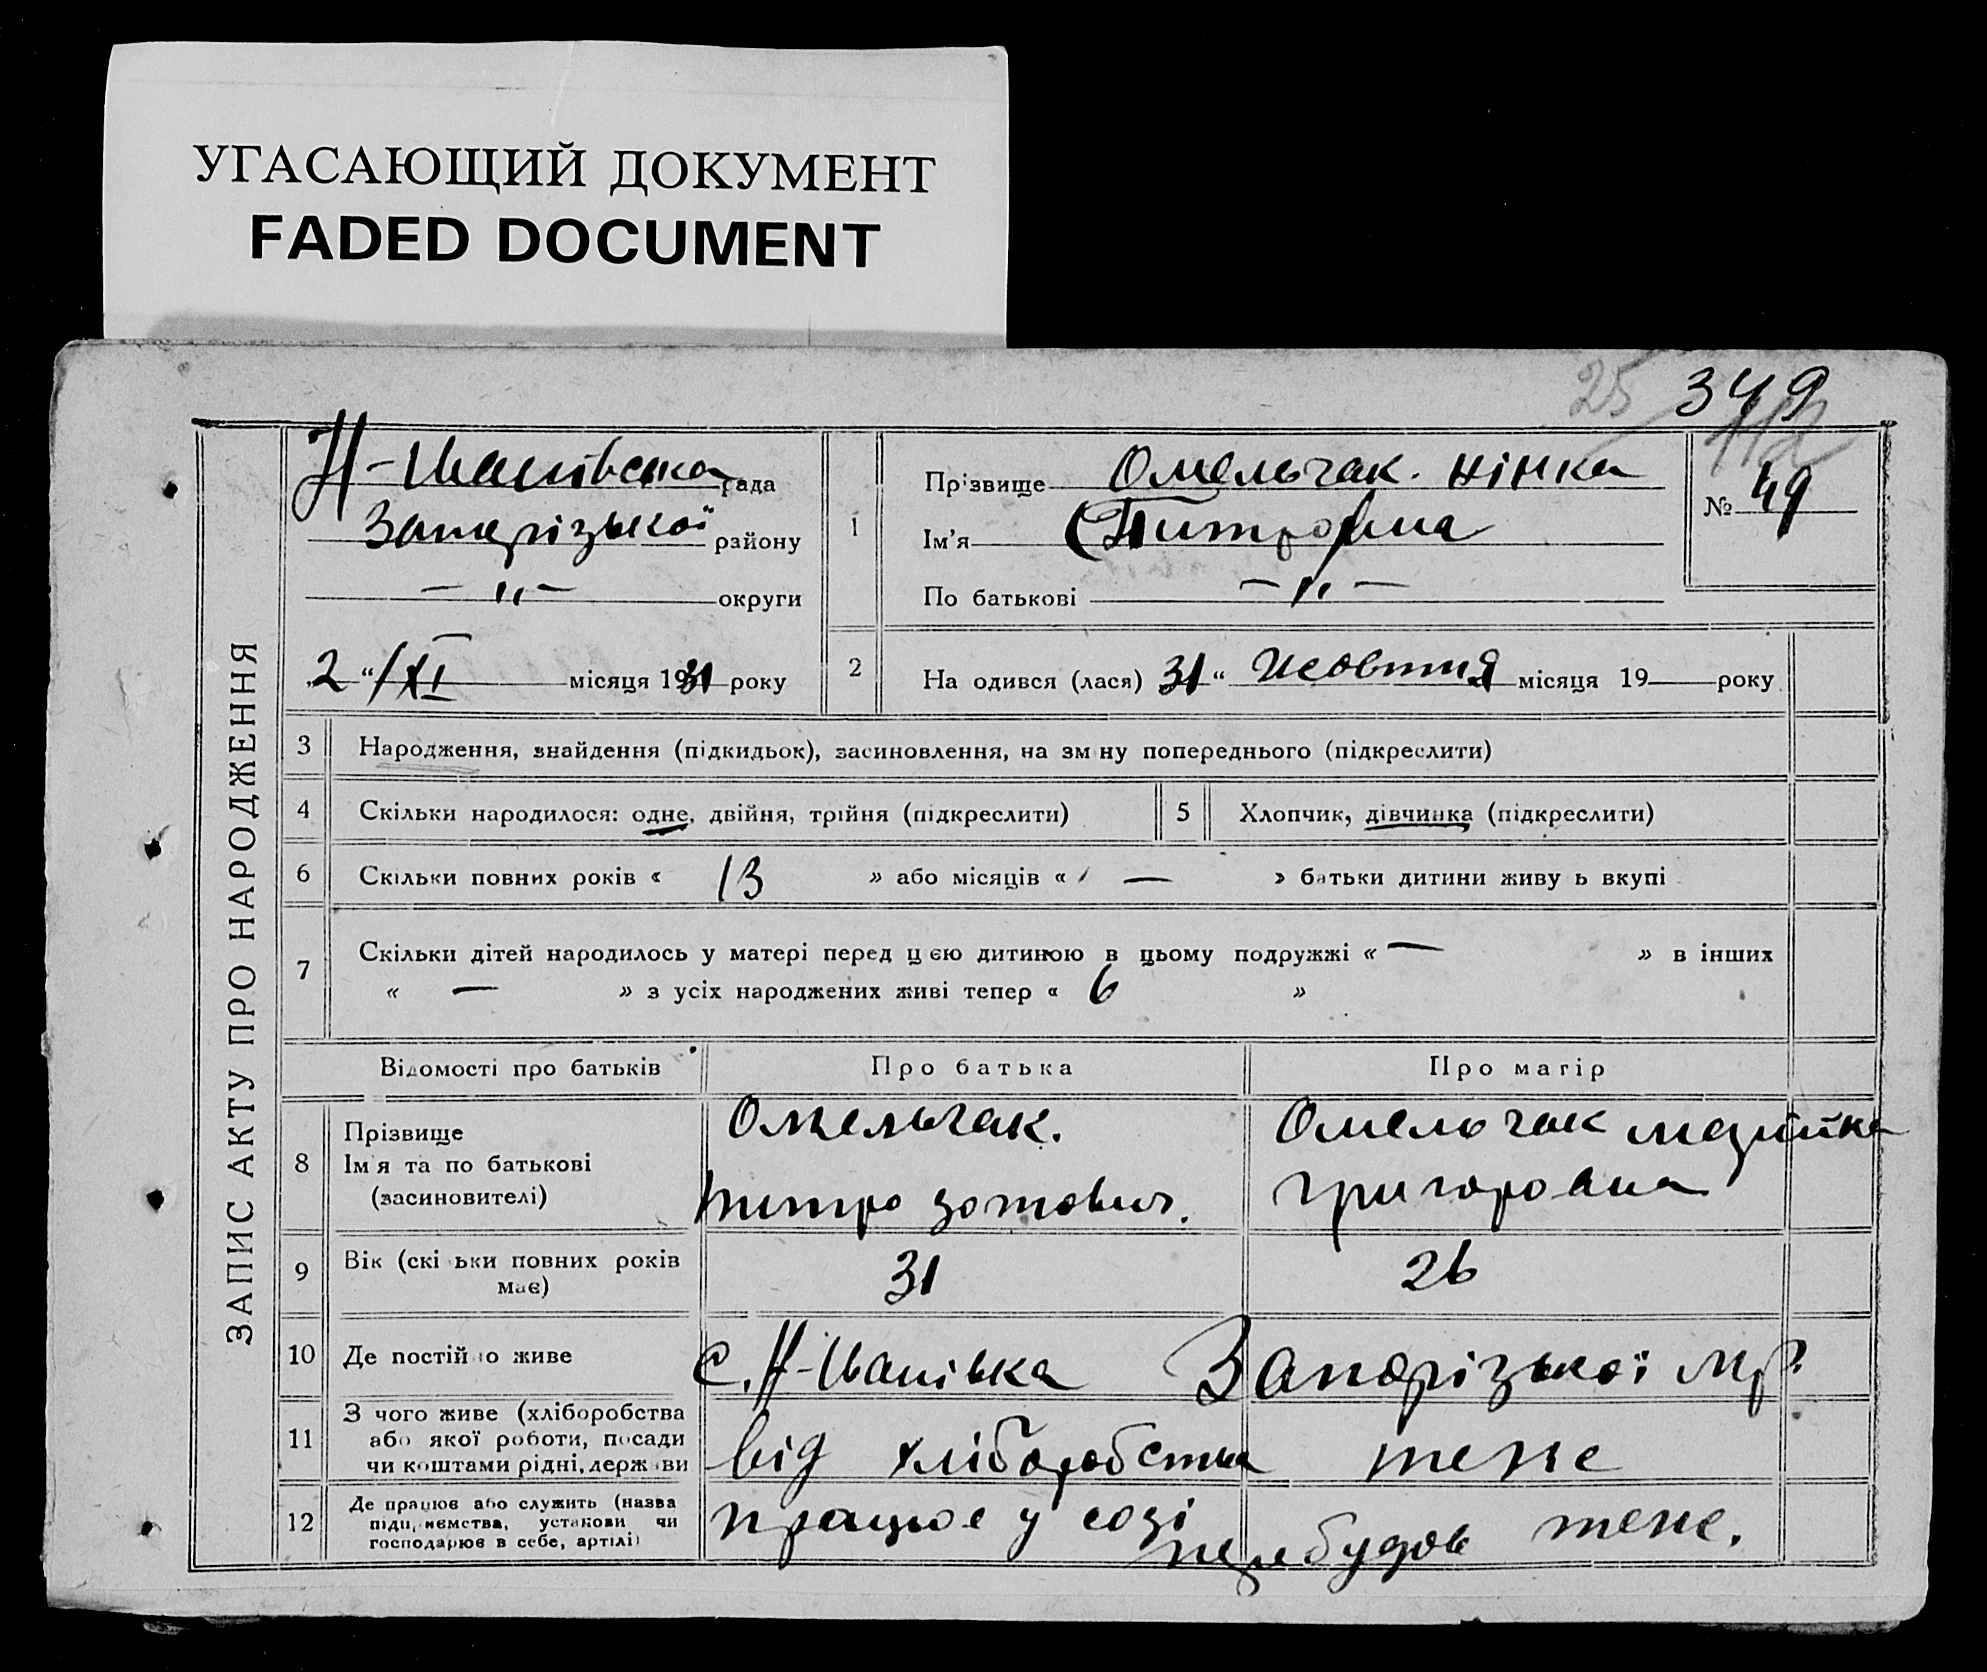 УГАСАЮЩИЙ ДОКУМЕНТ
FADED DOCUMENT
25 349
112
ЗАПИС АКТУ ПРО НАРОДЖЕННЯ
Н-Іванівська рада
Запорізької району
— " — округи
2 " XI місяця 1931 року
1
Прізвище Омельчак. нінка
Ім'я Питровна
По батькові — " —
№ 49
2 На одився (лася) 31 " Жовтня місяця 19 року
3 Народження, знайдення (підкидьок), засиновлення, на зм ну попереднього (підкреслити)
4 Скільки народилося: одне, двійня, трійня (підкреслити) 5 Хлопчик, дівчинка (підкреслити)
6 Скільки повних років « 13 » або місяців « — » батьки дитини живу ь вкупі
7 Скільки дітей народилось у матері перед цєю дитиною в цьому подружжі « — » в інших
« — » з усіх народжених живі тепер « 6 »
Відомості про батьків Про батька Про матір
8 Прізвище
Ім'я та по батькові
(засиновителі)
Омельчак.
питро зотович.
Омельчак марійка
григоровна
9 Вік (скі ьки повних років
має)
31 26
10 Де постійно живе с. Н-Іванівка Запорізької мр.
11 З чого живе (хліборобства
або якої роботи, посади
чи коштами рідні, держ ви
від хліборобства теже
12 Де працює або служить (назва
підприємства, установи чи
господарює в себе, артілі)
працює у созі
перебудов теже.